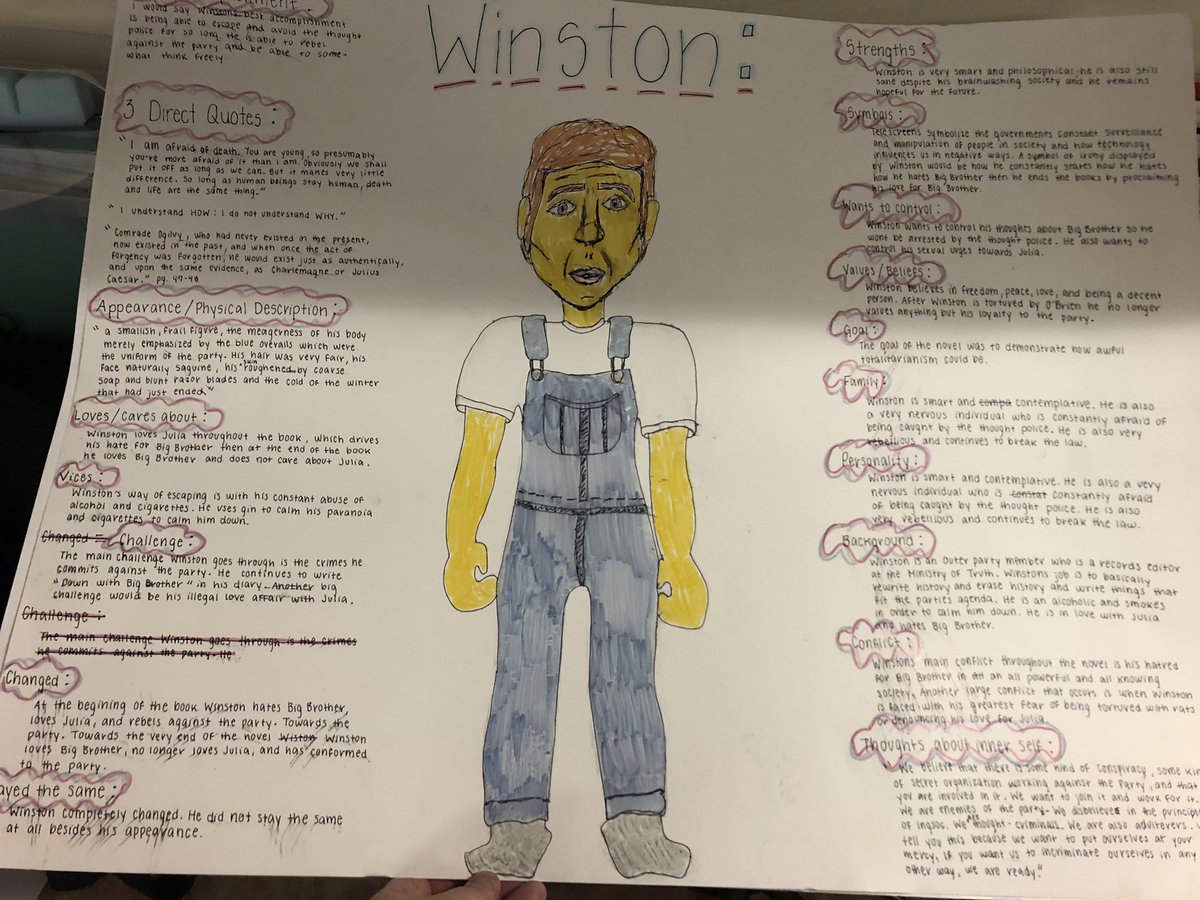 Winston:
I would say Winstons best accomplishment
is being able to escape and avoid the thought
police for so long. He is able to rebel
against the party and be able to some-
what think freely.
3 Direct Quotes:
"I am afraid of death. You are young, so presumably
you're more afraid of it than I am. Obviously we shall
put it off as long as we can. But it makes very little
difference. So long as human beings stay human, death
and life are the same thing."
"I understand HOW: I do not understand WHY."
"Comrade Ogilvy, who had never existed in the present,
now existed in the past, and when once the act of
forgency was forgotten, he would exist just as authentically,
and upon the same evidence, as Charlemagne or Julius
Caesar." pg. 47-48
Appearance/Physical Description:
"a smallish, frail figure, the meagerness of his body
merely emphasized by the blue overalls which were
the uniform of the party. His hair was very fair, his
face naturally saguine, his skin roughened by coarse
soap and blunt razor blades and the cold of the winter
that had just ended"
Loves/Cares about:
Winston loves Julia throughout the book, which drives
his hate for Big Brother then at the end of the book
he loves Big Brother and does not care about Julia.
Vices:
Winston's way of escaping is with his constant abuse of
alcohol and cigarettes. He uses gin to calm his paranoia
and cigarettes to calm him down.
Changed = Challenge:
The main challenge Winston goes through is the crimes he
commits against the party. He continues to write
"Down with Big Brother" in his diary. Another big
challenge would be his illegal love affair with Julia.
Challenge:
The main challenge Winston goes through is the crimes
he commits against the party. He
Changed:
At the begining of the book Winston hates Big Brother,
loves Julia, and rebels against the party. Towards the
party. Towards the very end of the novel Wiston Winston
loves Big Brother, no longer loves Julia, and has conformed
to the party.
ayed the same:
Winston completely changed. He did not stay the same
at all besides his appearance.
Strengths:
Winston is very smart and philosophical, he is also still
sane despite his brainwashing society and he remains
hopeful for the future.
Symbols:
Telescreens symbolize the governments constant surveillance
and manipulation of people in society and how technology
influences us in negative ways. A symbol of irony displayed
by Winston would be how he constantly states how he hates
how he hates Big Brother then he ends the books by proclaiming
his love for Big Brother.
Wants to control:
Winston wants to control his thoughts about Big Brother so he
wont be arrested by the thought police. He also wants to
control his sexual urges towards Julia.
Values/Beliefs:
Winston believes in freedom, peace, love, and being a decent
person. After Winston is tortured by O'Brien he no longer
values anything but his loyalty to the party.
Goal:
The goal of the novel was to demonstrate how awful
totalitarianism could be.
Family:
Winston is smart and compa contemplative. He is also
a very nervous individual who is constantly afraid of
being caught by the thought police. He is also very
rebellious and continues to break the law.
Personality:
Winston is smart and contemplative. He is also a very
nervous individual who is constat constantly afraid
of being caught by the thought police. He is also
very rebellious and continues to break the law.
Background:
Winston is an Outer party member who is a records editor
at the Ministry of Truth. Winstons job is to basically
rewrite history and erase history and write things that
fit the parties agenda. He is an alcoholic and smokes
in order to calm him down. He is in love with Julia
and hates Big Brother.
Conflict:
Winstons main conflict throughout the novel is his hatred
for Big Brother in an all powerful and all knowing
society. Another large conflict that occurs is when Winston
is faced with his greatest fear of being tortured with rats
or denouncing his love for Julia.
Thoughts about inner self:
We believe that there is some kind of conspiracy, some kin
of secret organization working against the Party, and that
you are involved in it. We want to join it and work for it.
We are enemies of the party. We disbelieved in the principl
of ingsoc. We are thought-criminals. We are also adulterers.
tell you this because we want to put ourselves at your
mercy, If you want us to incriminate ourselves in any
other way, we are ready."